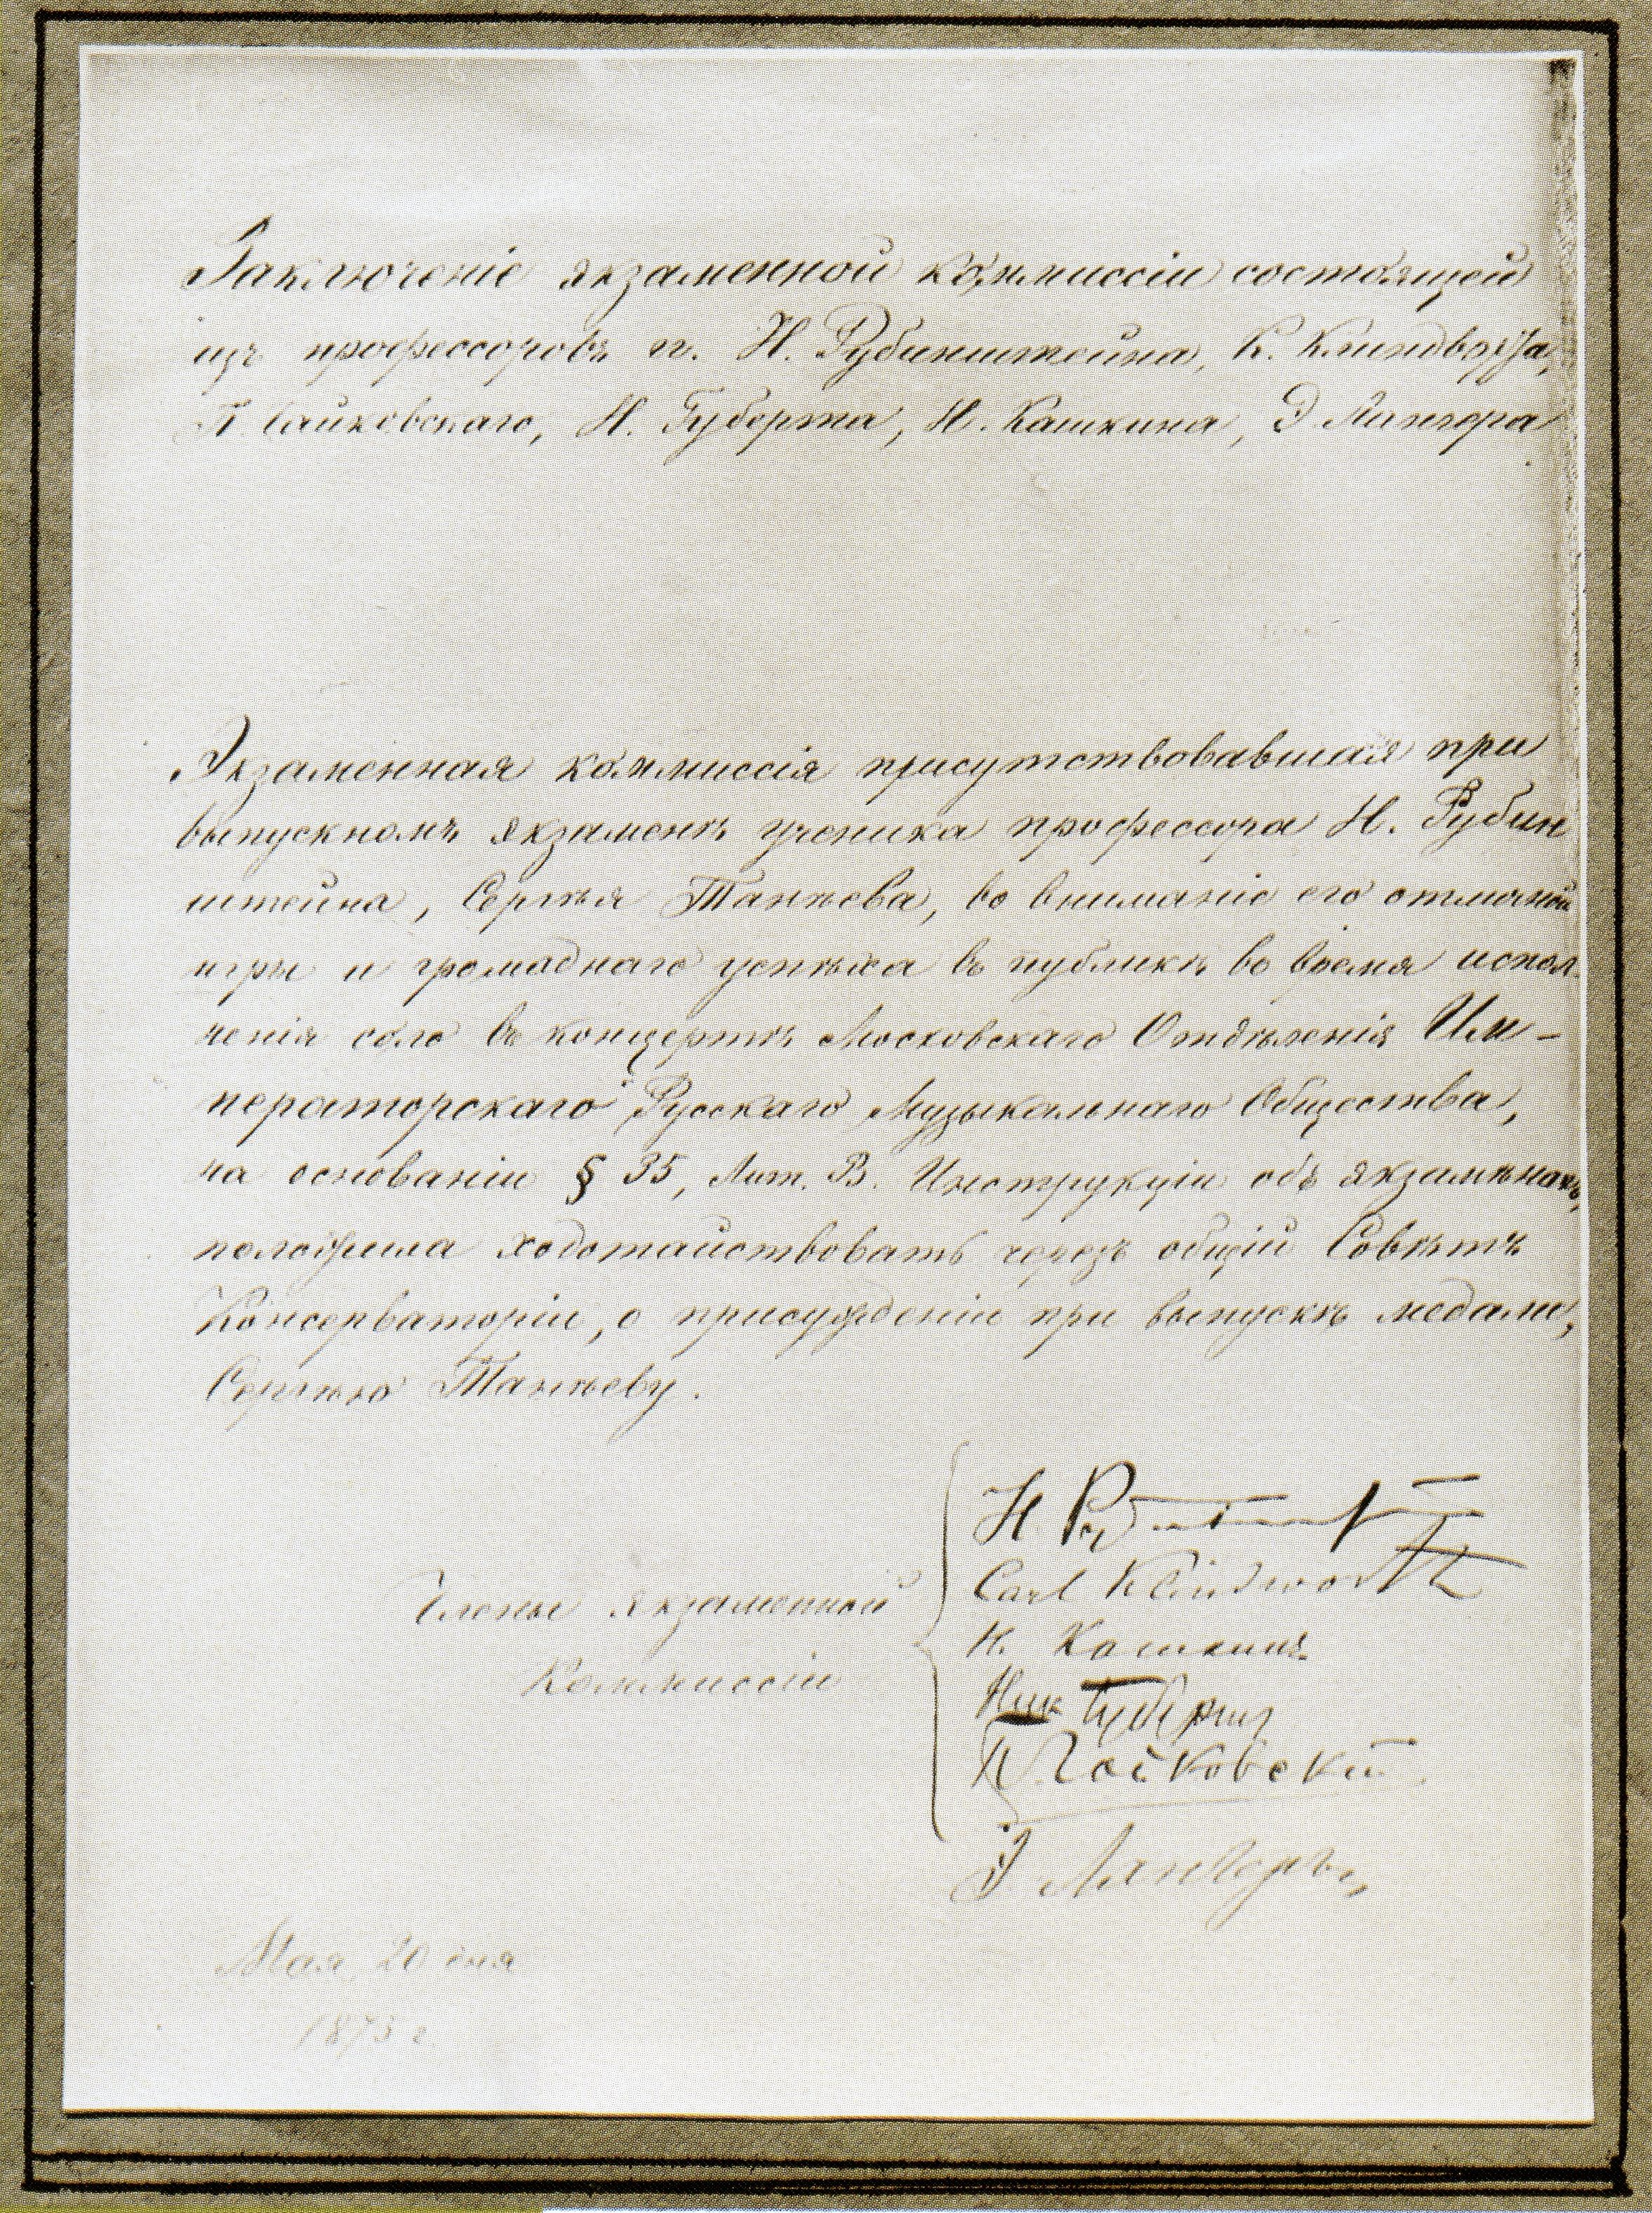 Заключеніе экзаменной коммиссіи состоящей
изъ профессоровъ гг. Н. Рубинштейна, К. Клиндворта,
П. Чайковскаго, Н. Губерта, Н. Кашкина, Э. Лангера
Экзаменная коммиссія присутствовавшая при
выпускномъ экзаменѣ ученика профессора Н. Рубин
штейна, Сергѣя Танѣева, во вниманіе его отличной
игры и громаднаго успѣха въ публикѣ во время испол
ненія соло въ концертѣ Московскаго Отдѣленія Им-
ператорскаго Русскаго Музыкальнаго Общества,
на основаніи § 35, Лит. В. Инструкціи объ экзаменахъ,
положила ходотайствовать черезъ общій Совѣтъ
Консерваторіи, о присужденіи при выпускѣ медали,
Сергѣю Танѣеву.
Н Рубинштейнъ
Carl Klindworth
Члены экзаменной
Н. Кашкинъ
Коммиссіи
Ник Губертъ
П. Чайковскій
Э Лангеръ
Мая 20 дня
1873 г.